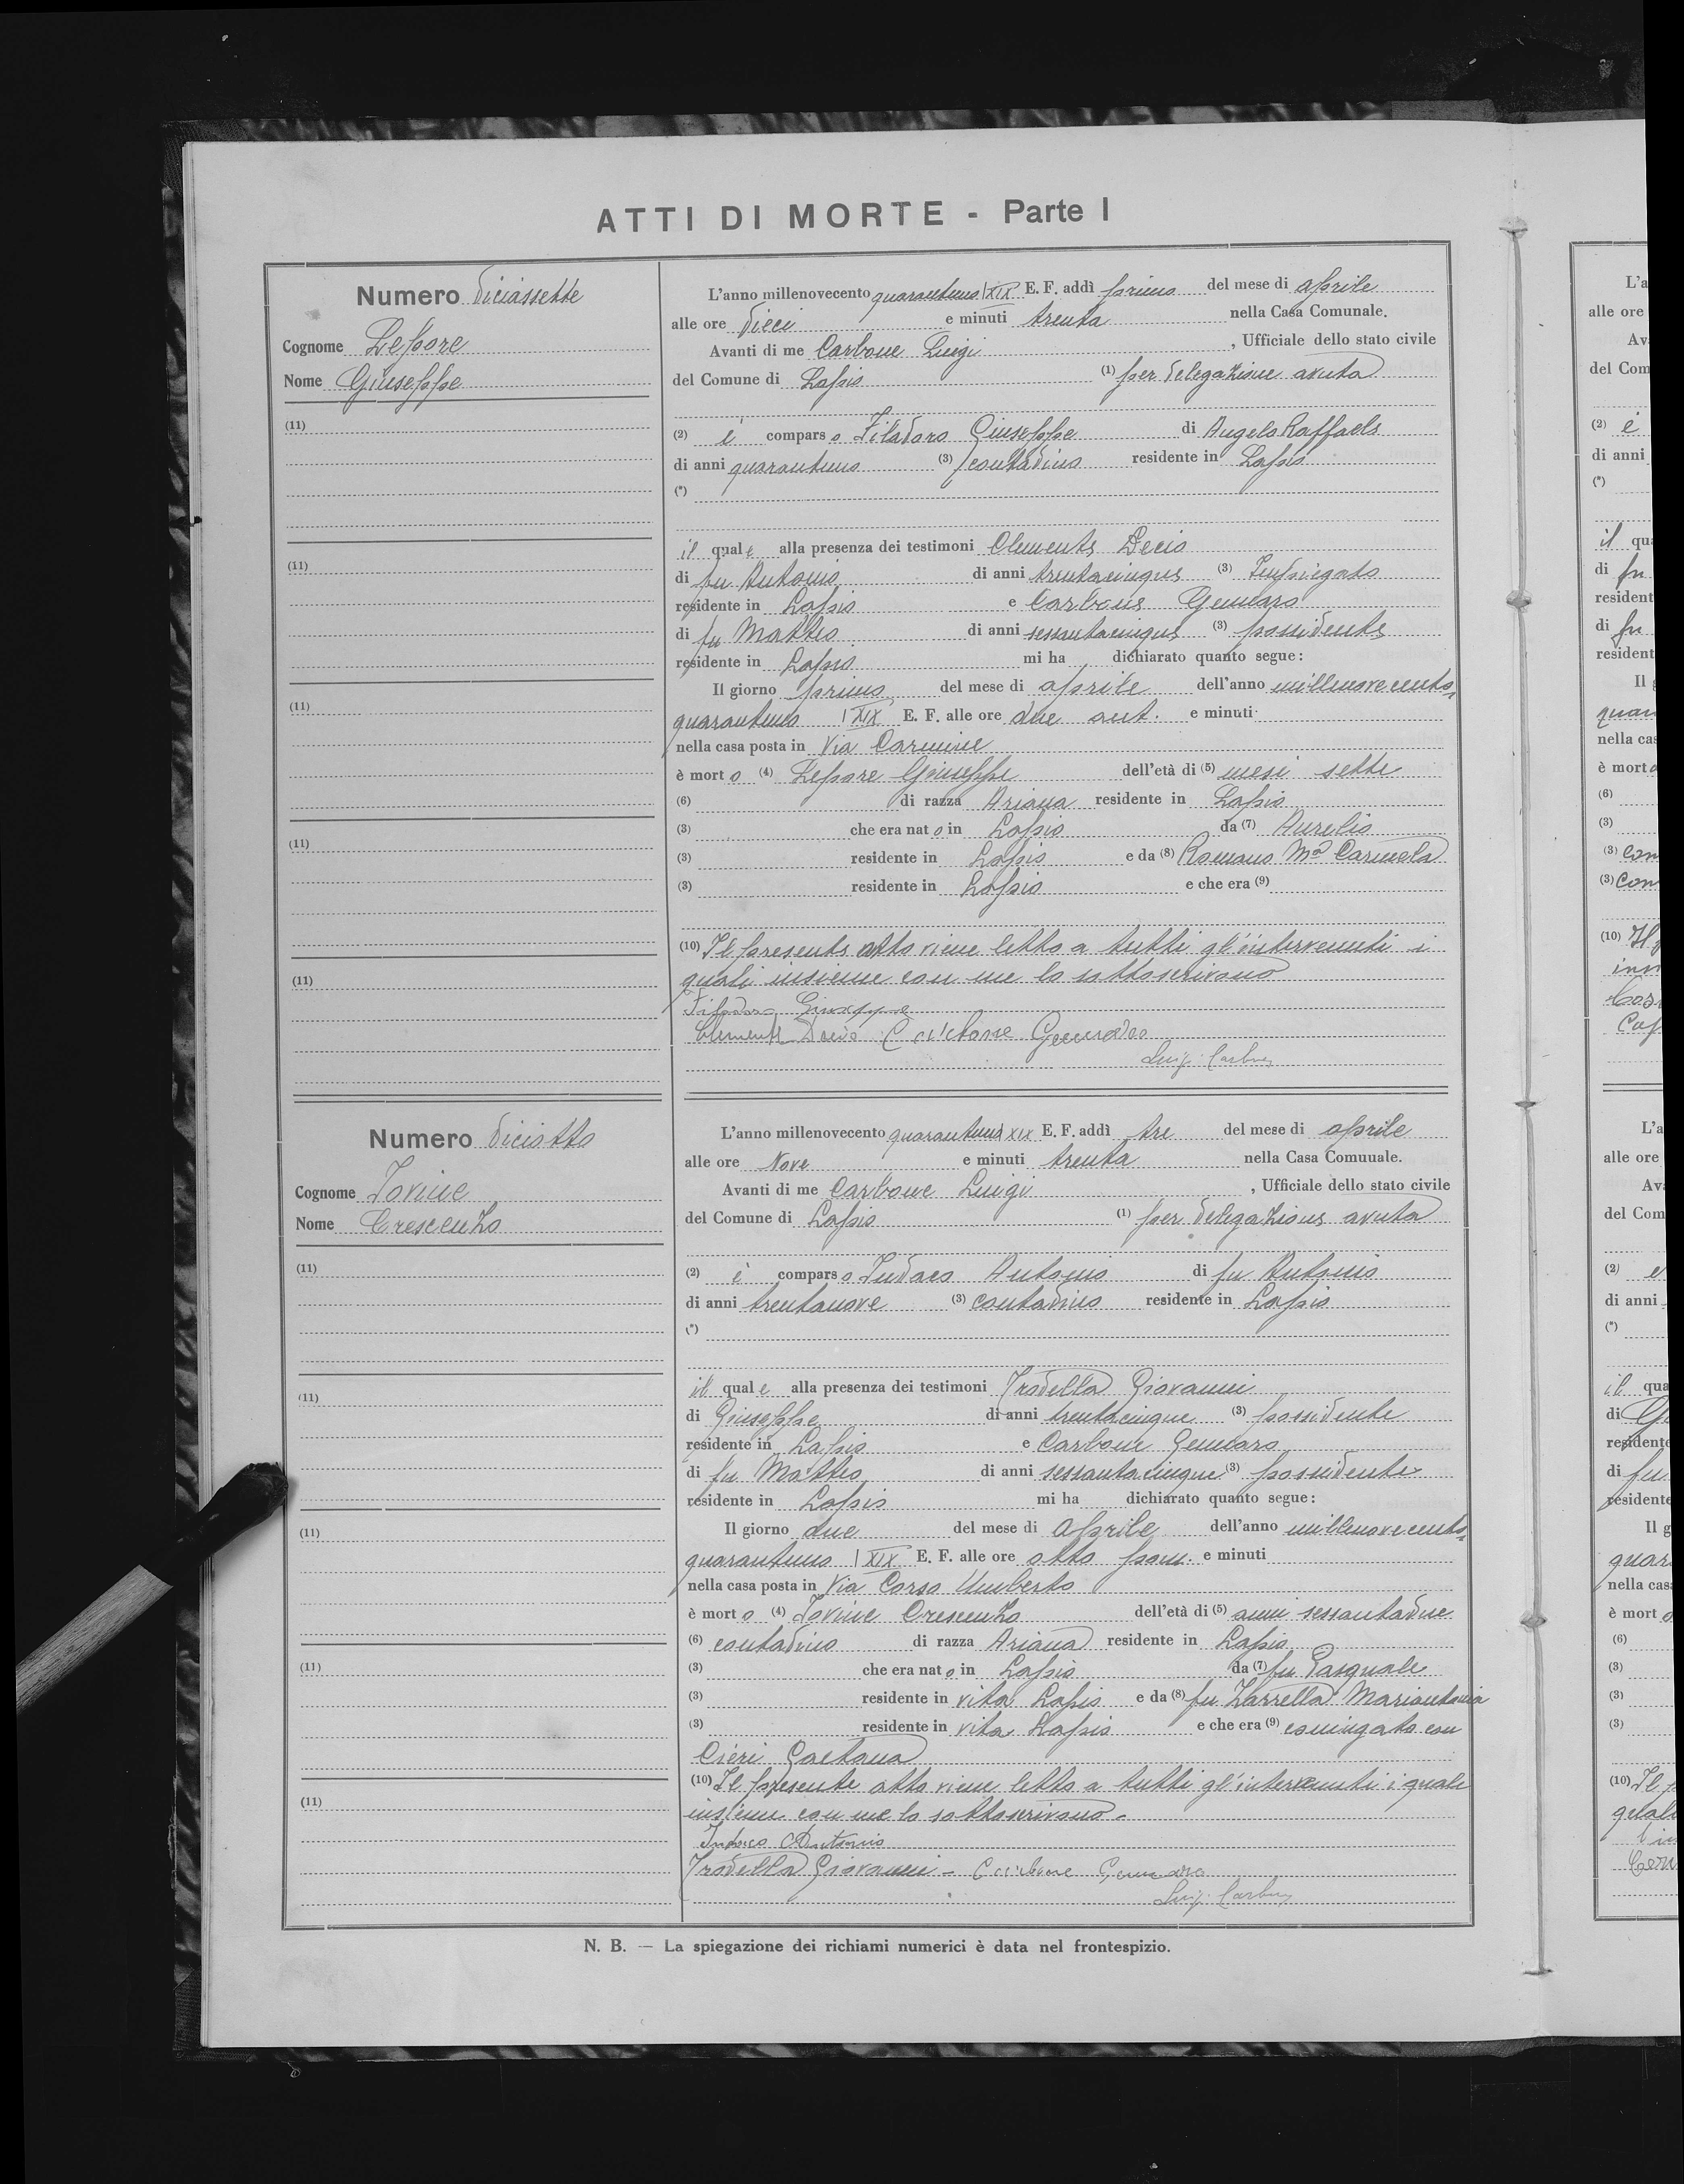 ATTI DI MORTE - Parte I
Numero diciassette
Cognome Lepore
Nome Giuseppe
(11)
(11)
(11)
(11)
(11)
L'anno millenovecento quarantuno XIX E. F. addì primo del mese di aprile
alle ore dieci e minuti trenta nella Casa Comunale.
Avanti di me Carbone Luigi , Ufficiale dello stato civile
del Comune di Lapio (1) per delegazione avuta
(2) è compars o Filadoro Giuseppe di Angelo Raffaele
di anni quarantuno (3) contadino residente in Lapio
(*)
il qual e alla presenza dei testimoni Clemente Decio
di fu Antonio di anni trentacinque (3) Impiegato
residente in Lapio e Carbone Gennaro
di fu Matteo di anni sessantacinque (3) possidente
residente in Lapio mi ha dichiarato quanto segue:
Il giorno primo del mese di aprile dell'anno millenovecento
quarantuno XIX E. F. alle ore due ant. e minuti
nella casa posta in Via Carmine
è mort o (4) Lepore Giuseppe dell'età di (5) mesi sette
(6) di razza Ariana residente in Lapio
(3) che era nat o in Lapio da (7) Aurelio
(3) residente in Lapio e da (8) Romano Mª Carmela
(3) residente in Lapio e che era (9)
(10) Il presente atto viene letto a tutti gl'intervenuti i
quali insieme con me lo sottoscrivono
Filadoro Giuseppe
Clemente Decio Carbone Gennaro
Luigi Carbone
Numero diciotto
Cognome Iovine
Nome Crescenzo
(11)
(11)
(11)
(11)
(11)
L'anno millenovecento quarantuno XIX E. F. addì tre del mese di aprile
alle ore Nove e minuti trenta nella Casa Comuuale.
Avanti di me Carbone Luigi , Ufficiale dello stato civile
del Comune di Lapio (1) per delegazione avuta
(2) è compars o Indaco Antonio di fu Antonio
di anni trentanove (3) contadino residente in Lapio
(*)
il qual e alla presenza dei testimoni Trodella Giovanni
di Giuseppe di anni trentacinque (3) possidente
residente in Lapio e Carbone Gennaro
di fu Matteo di anni sessantacinque (3) possidente
residente in Lapio mi ha dichiarato quanto segue:
Il giorno due del mese di Aprile dell'anno millenovecento
quarantuno XIX E. F. alle ore otto pom. e minuti
nella casa posta in Via Corso Umberto
è mort o (4) Iovine Crescenzo dell'età di (5) anni sessantadue
(6) contadino di razza Ariana residente in Lapio
(3) che era nat o in Lapio da (7) fu Pasquale
(3) residente in vita Lapio e da (8) fu Zarrella Mariantonia
(3) residente in vita Lapio e che era (9) coniugato con
Cieri Gaetana
(10) Il presente atto viene letto a tutti gl'intervenuti i quali
insieme con me lo sottoscrivono.
Indaco Antonio
Trodella Giovanni - Carbone Gennaro
Luigi Carbone
N. B. — La spiegazione dei richiami numerici è data nel frontespizio.